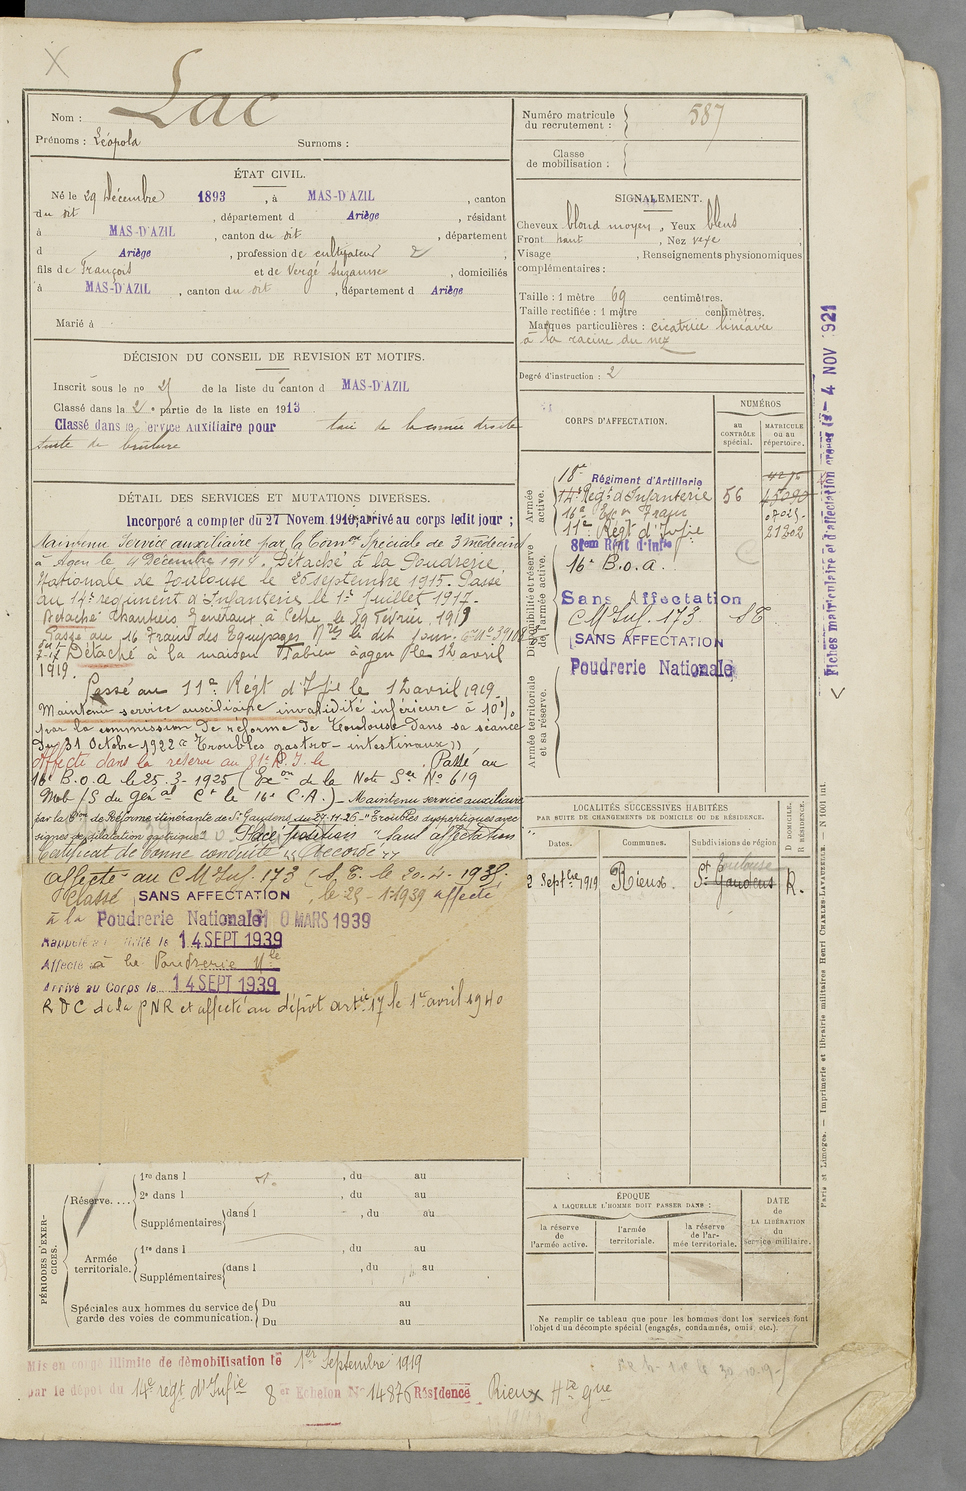 Lac
Nom :
Prénoms : Léopold Surnoms :
ÉTAT CIVIL.
Né le 29 Décembre 1893, à MAS-D'AZIL, canton
du dit, département d Ariège, résidant
à MAS-D'AZIL, canton du dit, département
d Ariège, profession de cultivateur
fils de François et de Vergé Suzanne, domiciliés
à MAS-D'AZIL, canton du dit, département d Ariège
Marié à
DÉCISION DU CONSEIL DE REVISION ET MOTIFS.
Inscrit sous le no 25 de la liste du canton d MAS-D'AZIL
Classé dans la 2e partie de la liste en 1913
Classé dans le Service Auxiliaire pour taie de la cornée droite
suite de brûlure
DÉTAIL DES SERVICES ET MUTATIONS DIVERSES.
Incorporé a compter du 27 Novem 1914; arrivé au corps ledit jour ;
Maintenu Service auxiliaire par la Comon Spéciale de 3 médecins
à Agen le 4 Décembre 1914. Détaché à la Poudrerie
Nationale de Toulouse le 26 septembre 1915. Passé
au 14e régiment d'Infanterie le 1er Juillet 1917.
Détaché Chantiers Généraux à Cette le 19 Février 1919
Passé au 16 Train des Equipages Mres le dit jour.
Détaché à la maison à Agen le 12 avril
1919.
Passé au 11e Régt d'Ifie le 12 avril 1919
Maintenu service auxiliaire invalidité inférieure à 10%
par la commission De réforme De Toulouse Dans sa séance
Du 31 Octobre 1922 "Troubles gastro-intestinaux"
Affecté dans la réserve au 81e R.I. le Passé au
16e B.O.A le 25.3-1925 (Exon de la Note Ser No 619
Mob /S du Génal Ct le 16e C.A.) - Maintenu service auxiliaire
par la Con de Réforme itinérante de St Gaudens du 27-11-26 - "Troubles dyspeptiques avec
signes de dilatation gastrique" Place position "Sans affectation
Certificat de bonne conduite "Accordé"
Affecté au C M Inf. 173 (S.E. le 20-4-193
Classé SANS AFFECTATION, le 25-1-1939 affecté
à la Poudrerie Nationale 10 MARS 1939
Rappelé à l'activité le 14 SEPT 1939
Affecté à la Poudrerie Nle
Arrivé au Corps le 14 SEPT 1939
R D C de la PNR et affecté au dépôt artie 17 le 1er avril 1940
PÉRIODES D'EXERCICES.
Réserve....
1re dans l , du au
2e dans l , du au
Supplémentaires dans l , du au
Armée territoriale.
1re dans l , du au
Supplémentaires dans l , du au
Spéciales aux hommes du service de garde des voies de communication.
Du au
Du au
Mis en congé illimité de démobilisation le 1er Septembre 1919
par le dépôt du 14e régt d'Infie 8er Echelon No 14876 Résidence Rieux Hte Gne
Numéro matricule
du recrutement : 587
Classe
de mobilisation :
SIGNALEMENT.
Cheveux blond moyen, Yeux bleus
Front haut, Nez vexe
Visage , Renseignements physionomiques
complémentaires :
Taille : 1 mètre 69 centimètres.
Taille rectifiée : 1 mètre centimètres.
Marques particulières : cicatrice linéaire
à la racine du nez
Degré d'instruction : 2
CORPS D'AFFECTATION.
NUMÉROS
au
CONTRÔLE
spécial.
MATRICULE
ou au
répertoire.
Armée
active.
18e Régiment d'Artillerie
14e Régt d'Infanterie 56
16e Eson Train
11e Régt d'Infie 21202
Disponibilité et réserve
de l'armée active.
81em Régt d'Infie
16e B.O.A.
Sans Affectation
C M Inf. 173. SE
SANS AFFECTATION
Poudrerie Nationale
Armée territoriale
et sa réserve.
LOCALITÉS SUCCESSIVES HABITÉES
PAR SUITE DE CHANGEMENTS DE DOMICILE OU DE RÉSIDENCE.
Dates.
Communes.
Subdivisions de région
D DOMICILE.
R RÉSIDENCE.
Toulouse
2 Septbre 1919 Rieux. St Gaudens R.
ÉPOQUE
A LAQUELLE L'HOMME DOIT PASSER DANS :
la réserve
de
l'armée active.
l'armée
territoriale.
la réserve
de l'ar-
mée territoriale.
DATE
de
LA LIBÉRATION
du
Service militaire.
Ne remplir ce tableau que pour les hommes dont les services font
l'objet d'un décompte spécial (engagés, condamnés, omis, etc.).
Fiches matriculaire et d'affectation créées le - 4 NOV 1921
Paris et Limoges. — Imprimerie et librairie militaires Henri CHARLES-LAVAUZELLE.